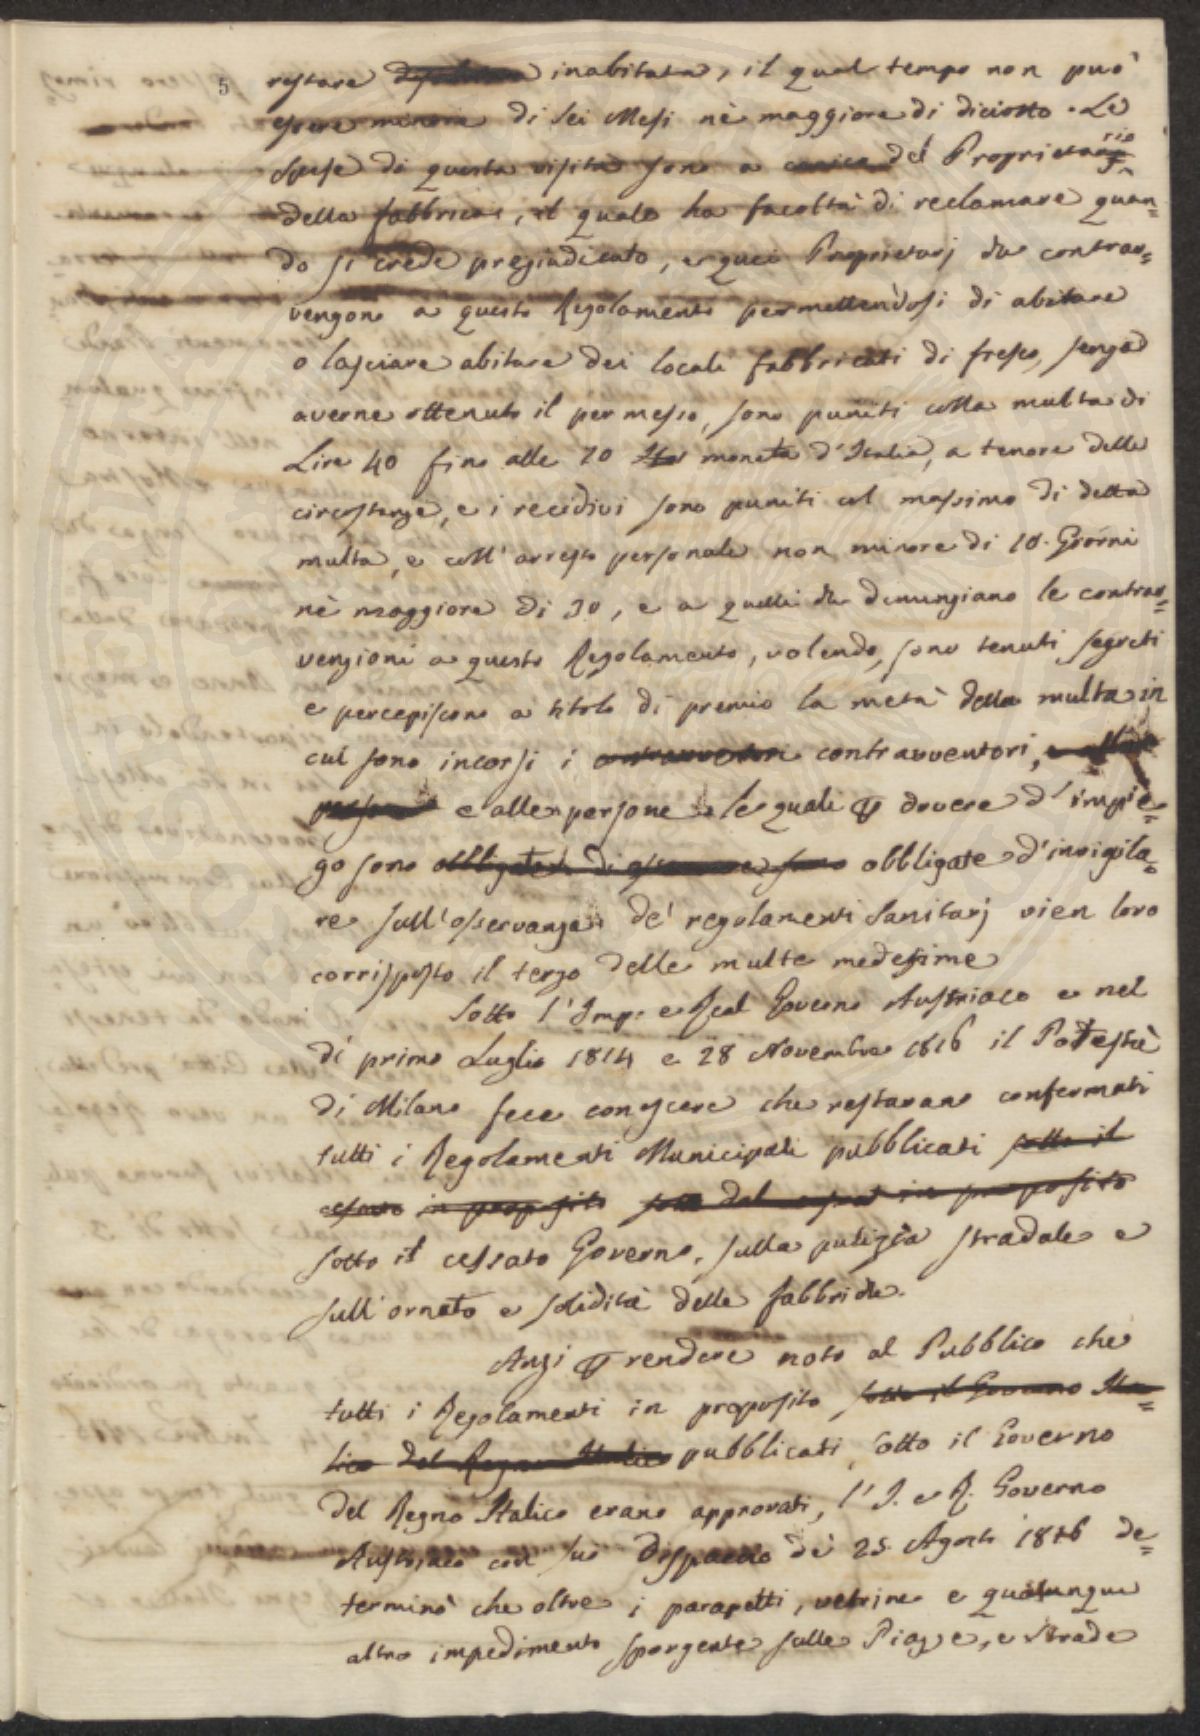 5
restare inabitata, il qual tempo non può
essere minore di sei Mesi nè maggiore di diciotto. Le
spese di questa visita sono a carico del Proprietario
della fabbrica, il quale ha facoltà di reclamare quan=
do si crede pregiudicato, e quei Proprietarj che contrav=
vengono a questo Regolamento permettendosi di abitare
o lasciare abitare dei locali fabbricati di fresco, senza
averne ottenuto il permesso, sono puniti colla multa di
Lire 40 fino alle moneta d'Italia, a tenore delle
circostanze, e i recidivi sono puniti col massimo di detta
multa, e coll'arresto personale non minore di 10. Giorni
nè maggiore di 30, e a quelli che denunziano le contrav=
venzioni a questo Regolamento, volendo, sono tenuti segreti
e percepiscono a titolo di premio la metà della multa in
cui sono incorsi i contravventori contravventori,
e alle persone le quali p dovere d'impie=
go sono obbligate di obbligate d'invigila=
re sull'osservanza de' regolamenti Sanitarj vien loro
corrisposto il terzo delle multe medesime
Sotto l'Imp: e Real Governo Austriaco e nel
dì primo Luglio 1814 e 28 Novembre 1816 il Potestà
di Milano fece conoscere che restavano confermati
tutti i Regolamenti Municipali pubblicati sotto il
cessato in proposito sotto del in proposito
sotto il cessato Governo, sulla pulizia stradale e
sull'ornato e solidità delle fabbriche.
Anzi p rendere noto al Pubblico che
tutti i Regolamenti in proposito sotto il Governo Ita=
lico del Regno Italico pubblicati, sotto il Governo
del Regno Italico erano approvati, l'I. e R. Governo
Austriaco con suo dispaccio dì 25 Agosto 1816 de=
terminò che oltre i parapetti, vetrine e qualunque
altro impedimento sporgente sulle Piazze, e Strade